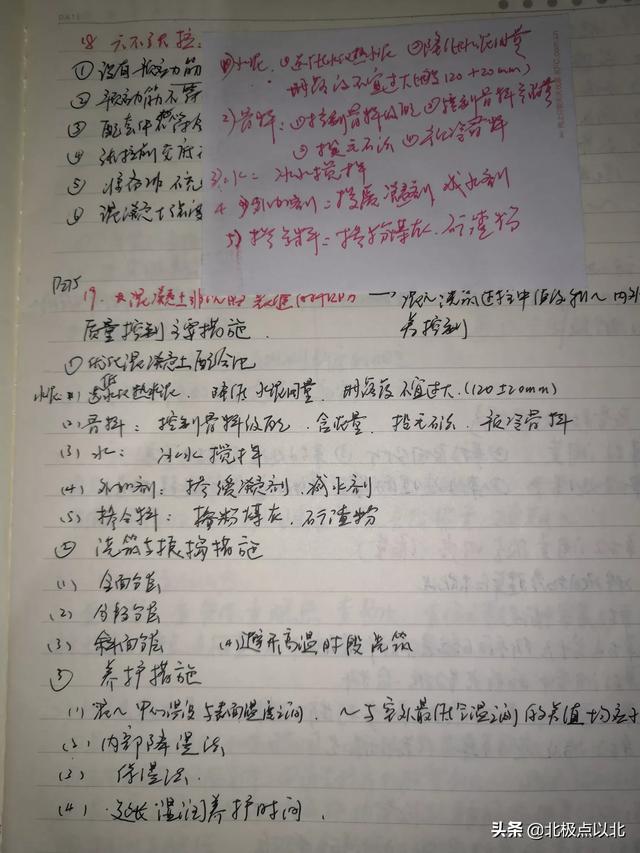 DATE
18 六不张拉:
① 没有预应力筋
② 预应力筋不
③ 配套件不齐全
④ 张拉
⑤
⑥ 混凝土强度
1)水泥. ①选低水化热水泥 ②降低水泥用量
坍落度不宜过大(120±20mm)
2)骨料: ①控制骨料级配 ②控制骨料含泥量
③投无石沫 ④预冷骨料
3)水: 冰水搅拌
4 外加剂: 掺缓凝剂 减水剂
5)掺合料: 掺粉煤灰. 矿渣粉
P275
19. 大混凝土
质量控制主要措施.
①优化混凝土配合比
水泥(1) 选低水化热水泥 降低水泥用量 坍落度不宜过大.(120±20mm)
(2) 骨料: 控制骨料级配. 含泥量. 预冷骨料
(3) 水: 冰水搅拌
(4) 外加剂: 掺缓凝剂. 减水剂
(5) 掺合料: 掺粉煤灰. 矿渣粉
② 浇筑与振捣措施
(1) 全面分层
(2) 分段分层
(3) 斜面分层 (4)避开高温时段浇筑
③ 养护措施
(1) 混~中心温度与表面温度之间. ~与室外最低气温之间的差值均应
(2) 内部降温法
(3) 保温法.
(4) 延长湿润养护时间.
头条 @北极点以北